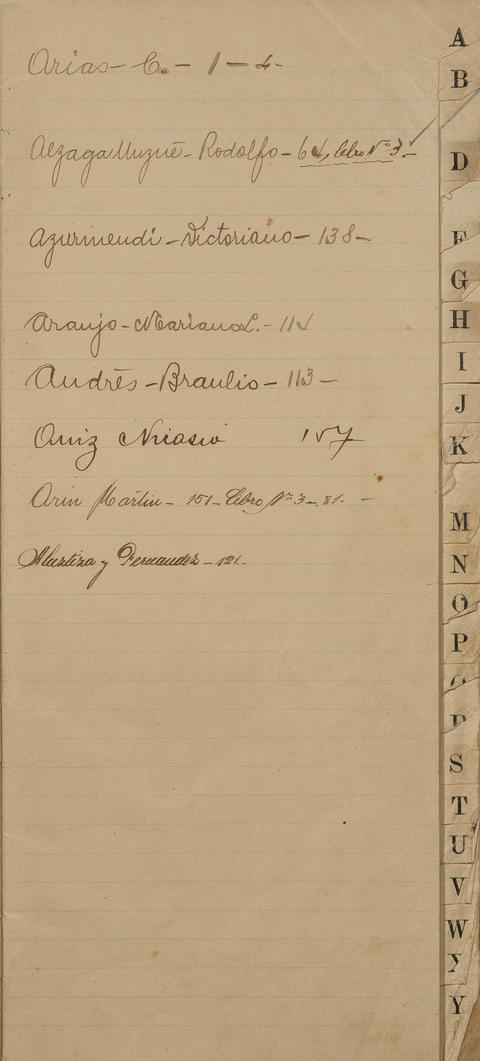 Arias - C. - 1 - 4 -
Alzaga Unzué - Rodolfo - 64, libro Nº 3 -
Azurmendi - Victoriano - 138 -
Araujo - Mariano L. - 114
Andrés - Braulio - 113 -
Aniz Nicasio 157
Arin Martin - 151 - libro Nº 3 - 81 - -
y Fernandez - 121 -
A
B
D
F
G
H
I
J
K
M
N
O
P
S
T
U
V
W
Y